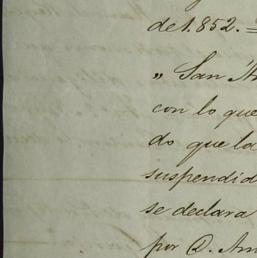 de 1.852. =
" San An
con lo que
do que la
suspendid
se declara
por D. Am